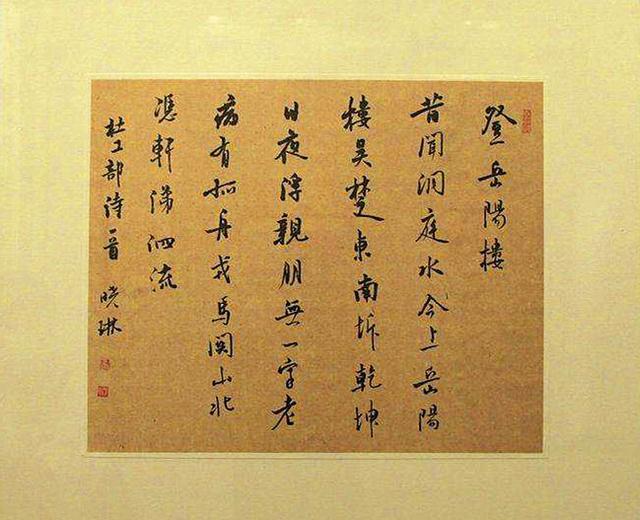 登岳陽樓
昔聞洞庭水今上岳陽
樓吴楚東南坼乾坤
日夜浮親朋無一字老
病有孤舟戎馬関山北
憑軒涕泗流
杜工部诗一首 晓琳